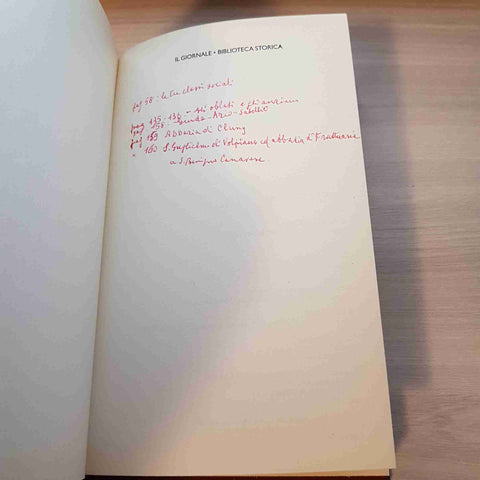 IL GIORNALE • BIBLIOTECA STORICA
pag 58: le tre classi sociali
pag 135-136 - Gli oblati e
pag 158 -
pag 159 Abbazia di Cluny
" 160 S. Guglielmo di Volpiano ed abbatia di Fruttuaria
a S. Benigno Canavese